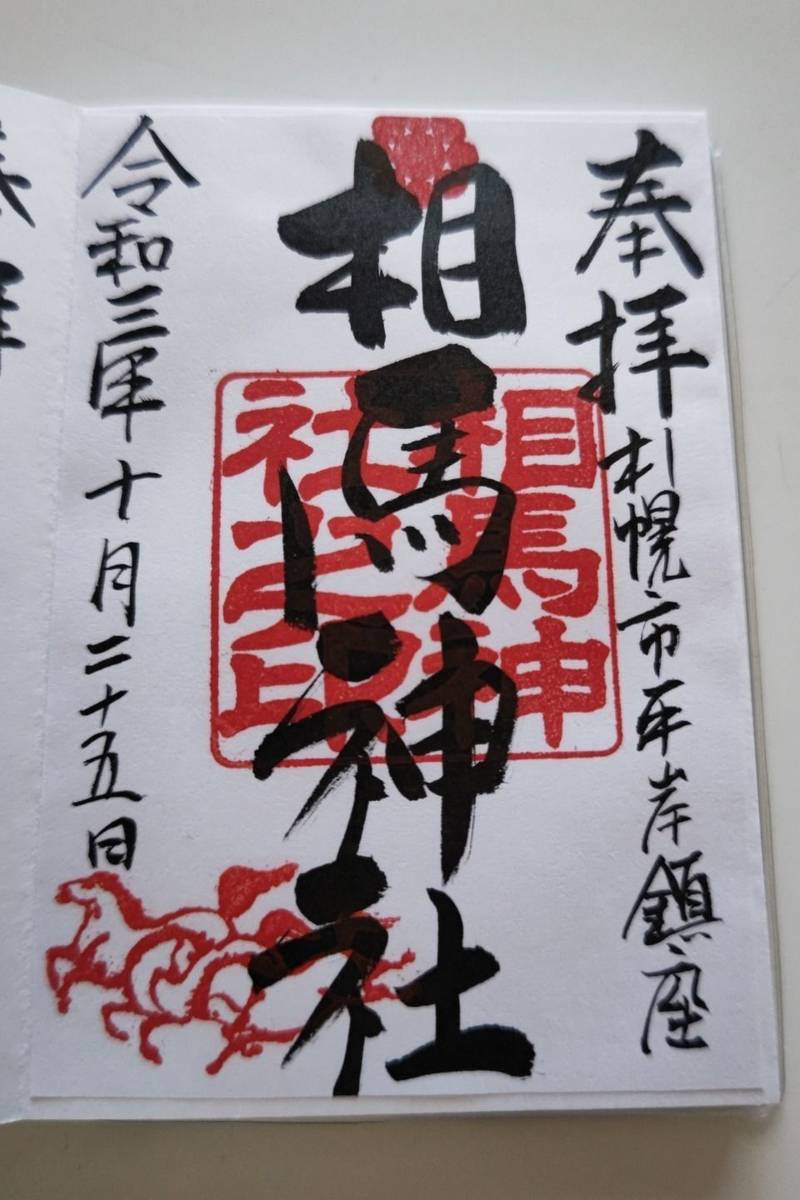 奉拝 札幌市平岸鎮座
相馬神社
相馬神
社之印
令和三年十月二十五日
拝